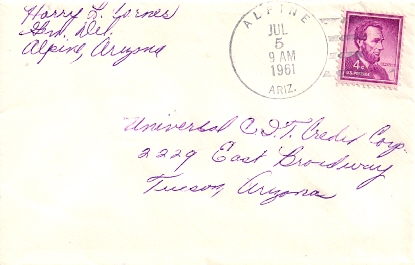 Harry L. Yarnes
Gen. Del.
Alpine, Arizona
ALPINE
JUL
5
9 AM
1961
ARIZ.
4¢
U.S. POSTAGE
Universal C.I.T. Credit Corp.
2229 East Broadway
Tucson, Arizona